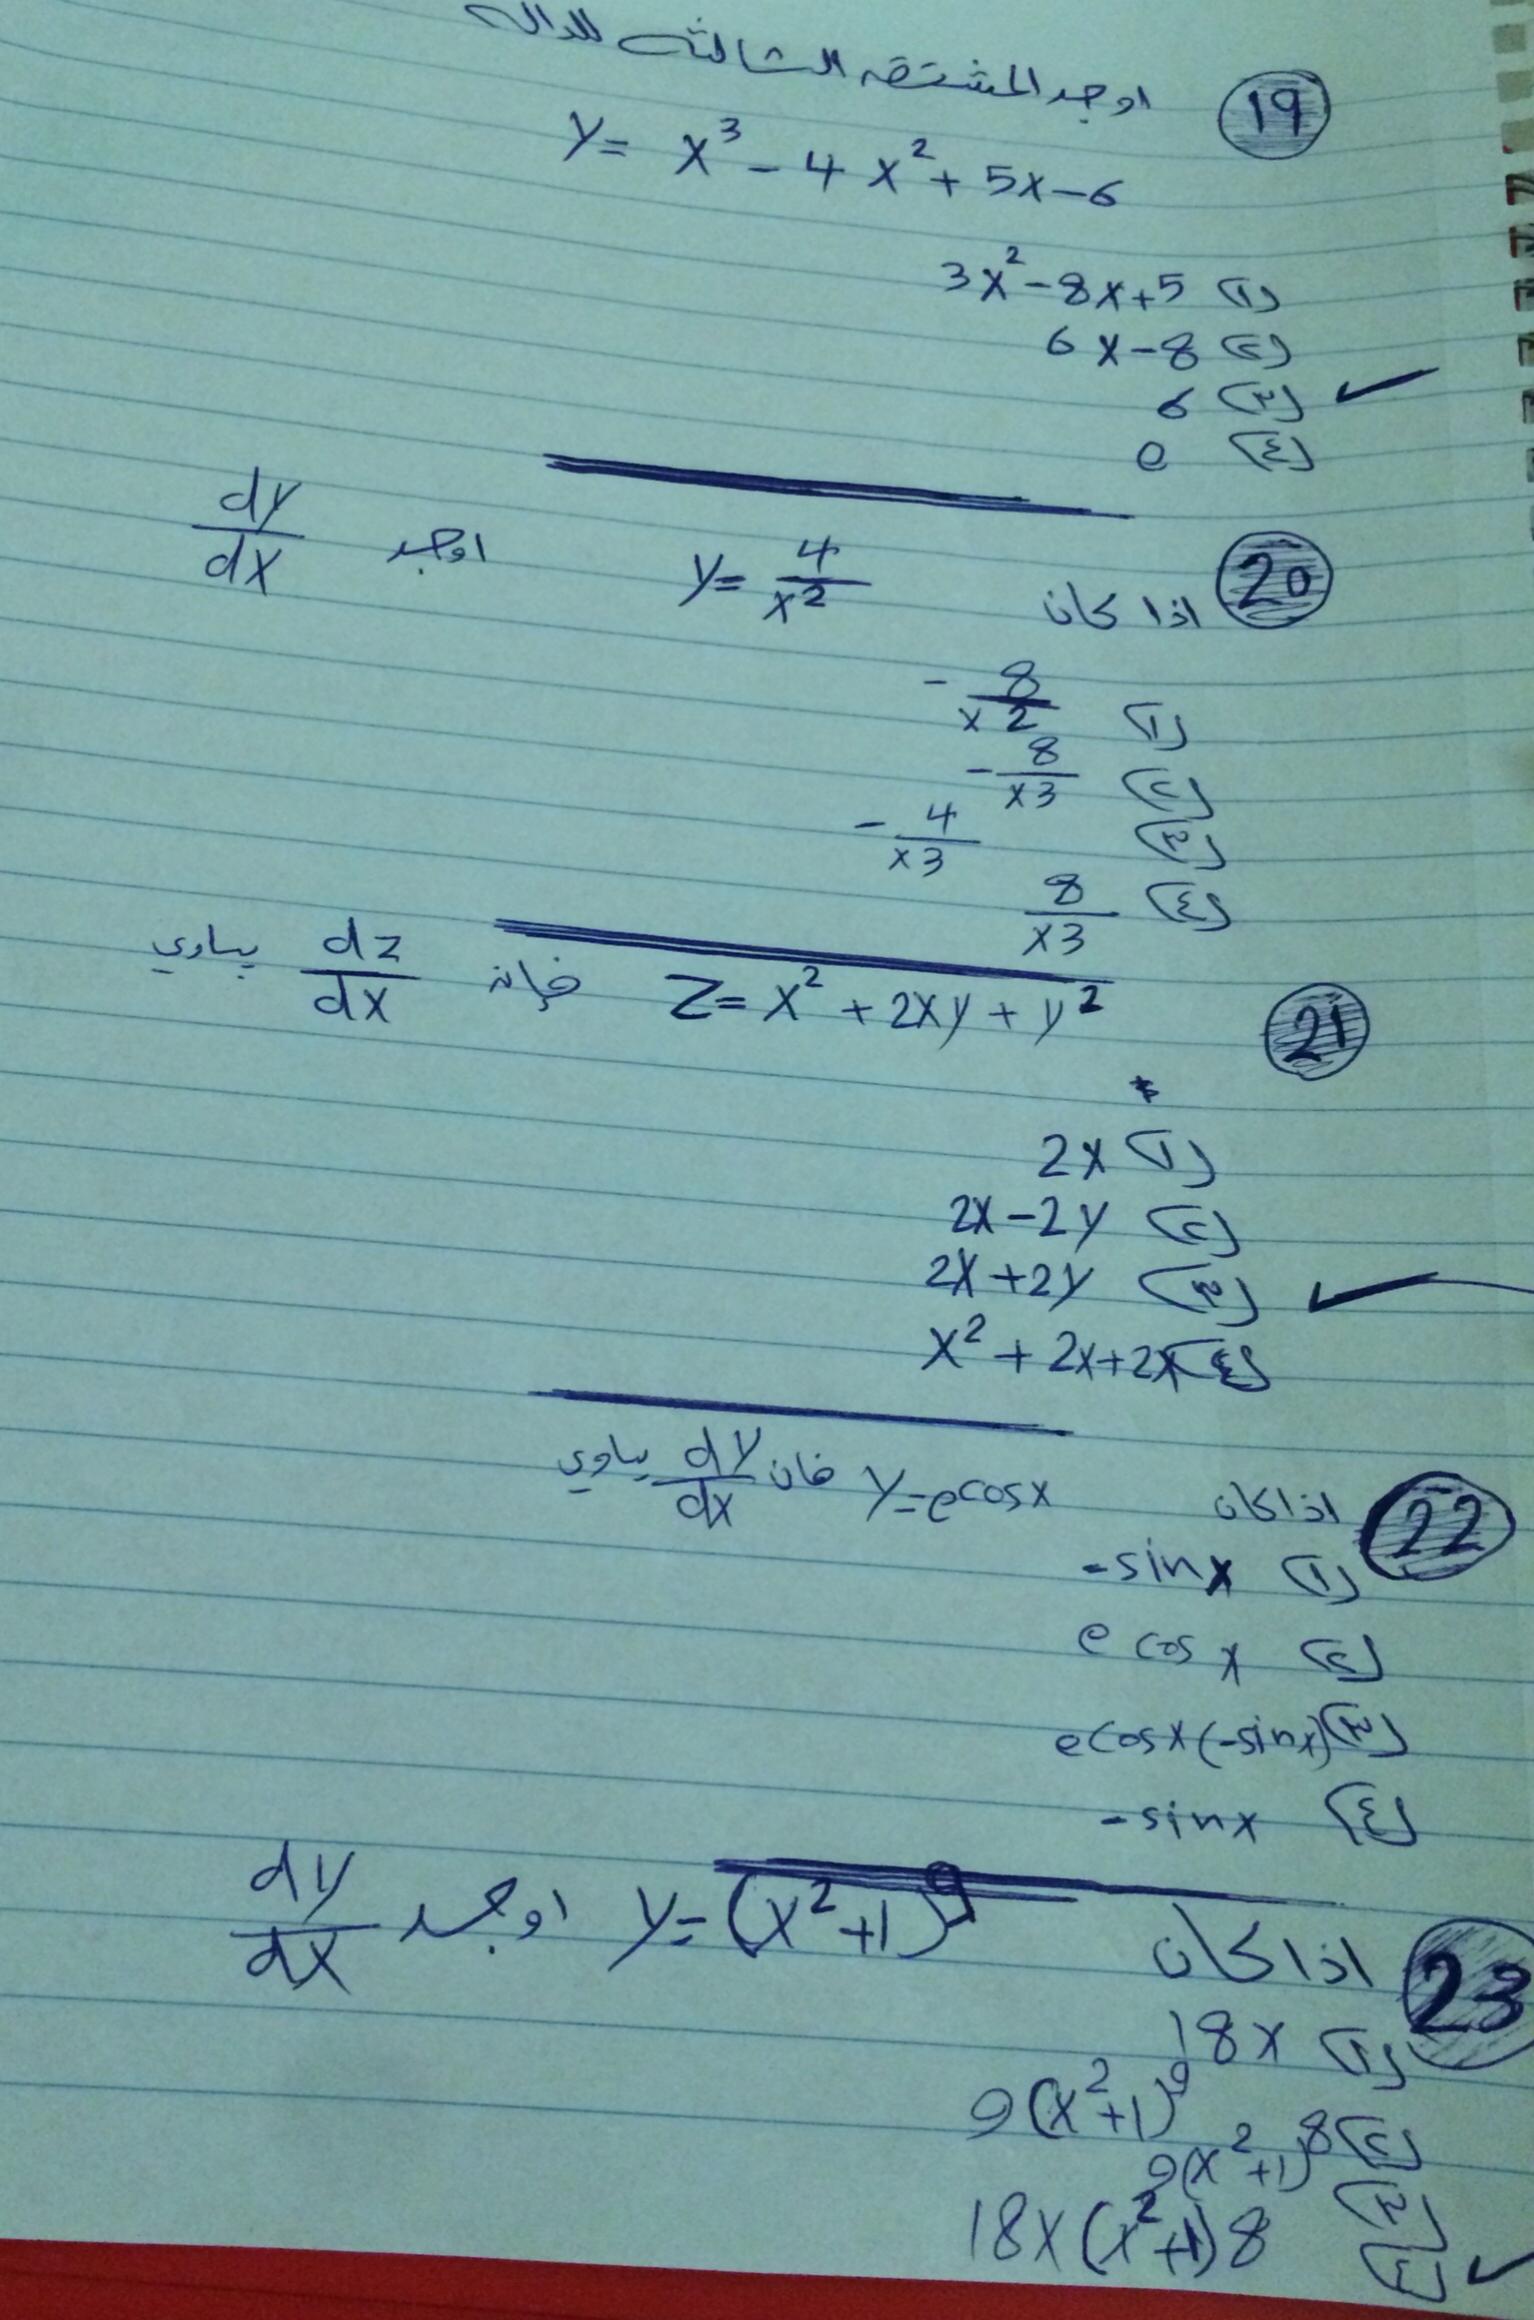 19 اوجد المشتقه الثالثه للداله
y = x³ - 4x² + 5x - 6
(١) 3x² - 8x + 5
(٢) 6x - 8
(٣) 6 ✓
(٤) e
20 اذا كان y = 4/x² اوجد dy/dx
(١) - 8/x2
(٢) - 8/x3
(٣) - 4/x3
(٤) 8/x3
21 Z = x² + 2xy + y² فإنه dz/dx يساوي
(١) 2x
(٢) 2x - 2y
(٣) 2x + 2y ✓
(٤) x² + 2x + 2x
22 اذا كان y = ecosx فان dy/dx يساوي
(١) -sinx
(٢) e cos x
(٣) ecosx(-sinx)
(٤) -sinx
23 اذا كان y = (x² + 1)⁹ اوجد dy/dx
(١) 18x
(٢) 9(x² + 1)⁹
(٣) 9(x² + 1)8
(٤) 18x(x² + 1)8 ✓